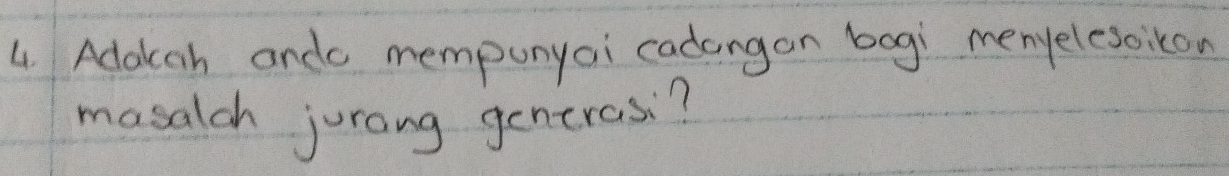 4. Adakah anda mempunyai cadangan bagi menyelesaikan
masalah jurang generasi?